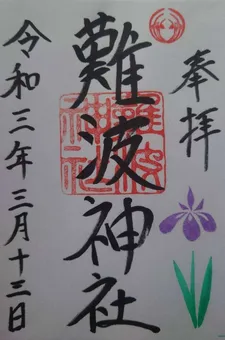 奉拝
難波神社
令和三年三月十三日
難波
神社